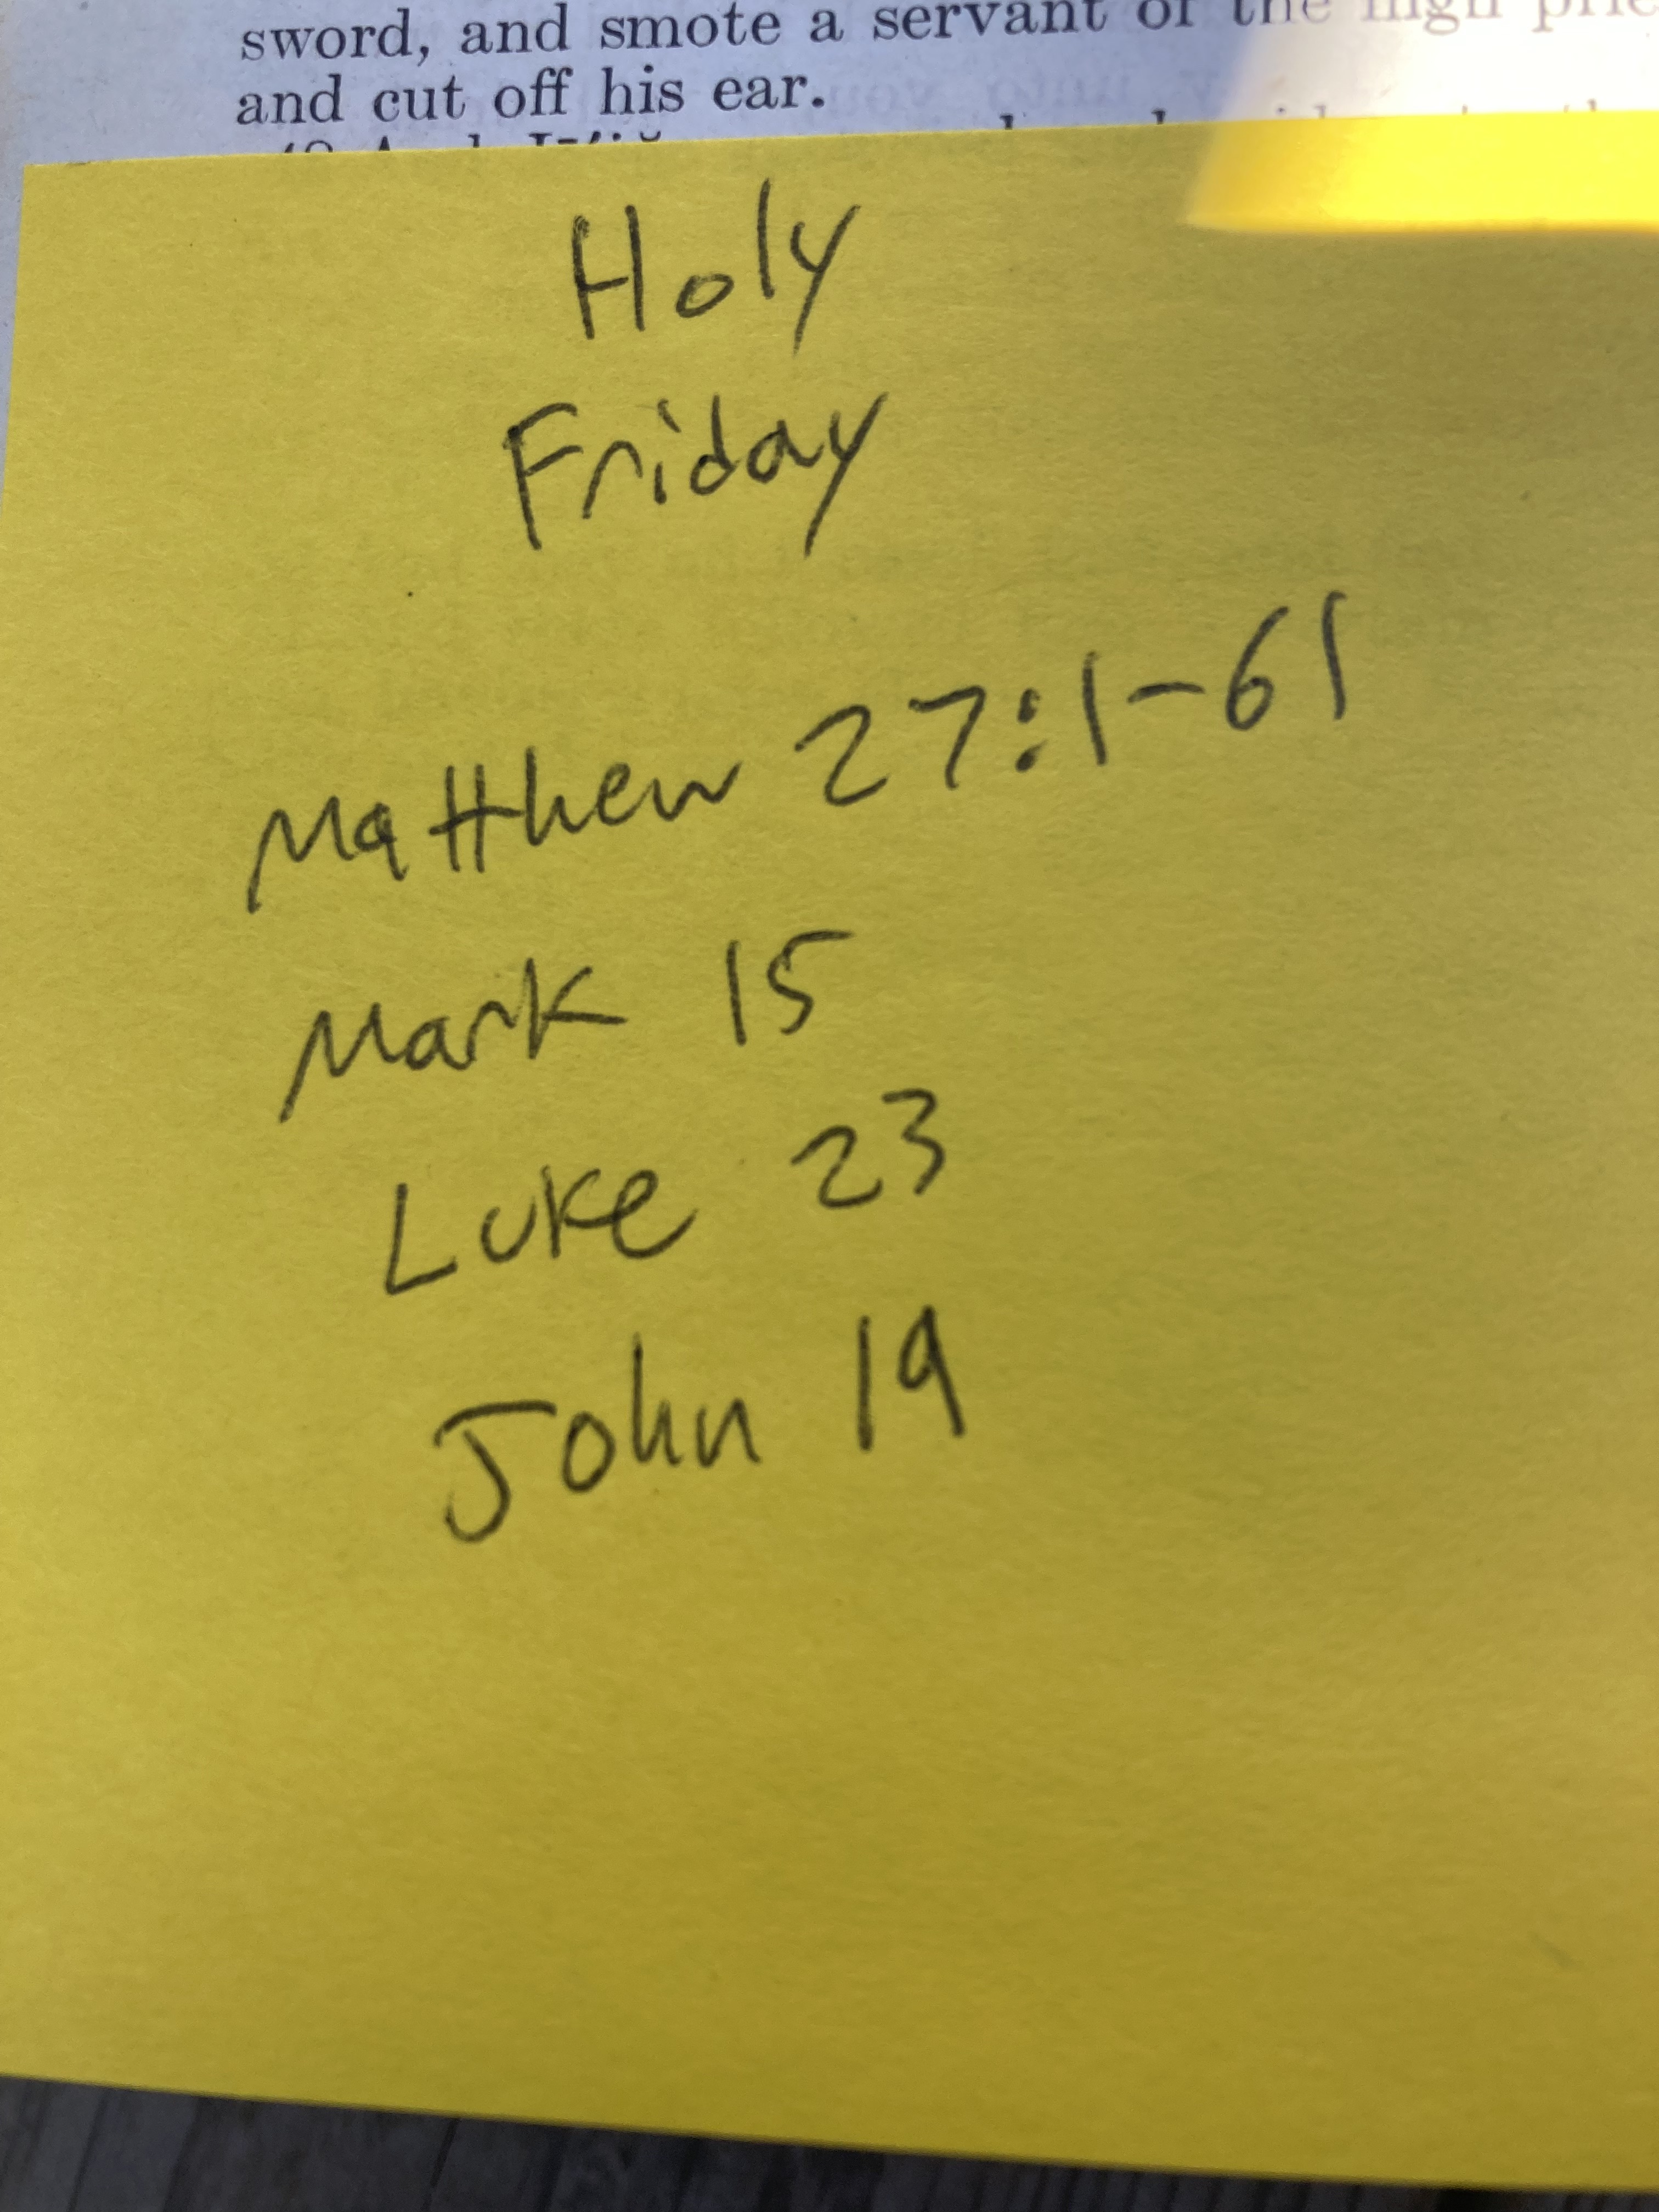 sword, and smote a servant of the high
and cut off his ear.
Holy
Friday
Matthew 27:1-61
Mark 15
Luke 23
John 19